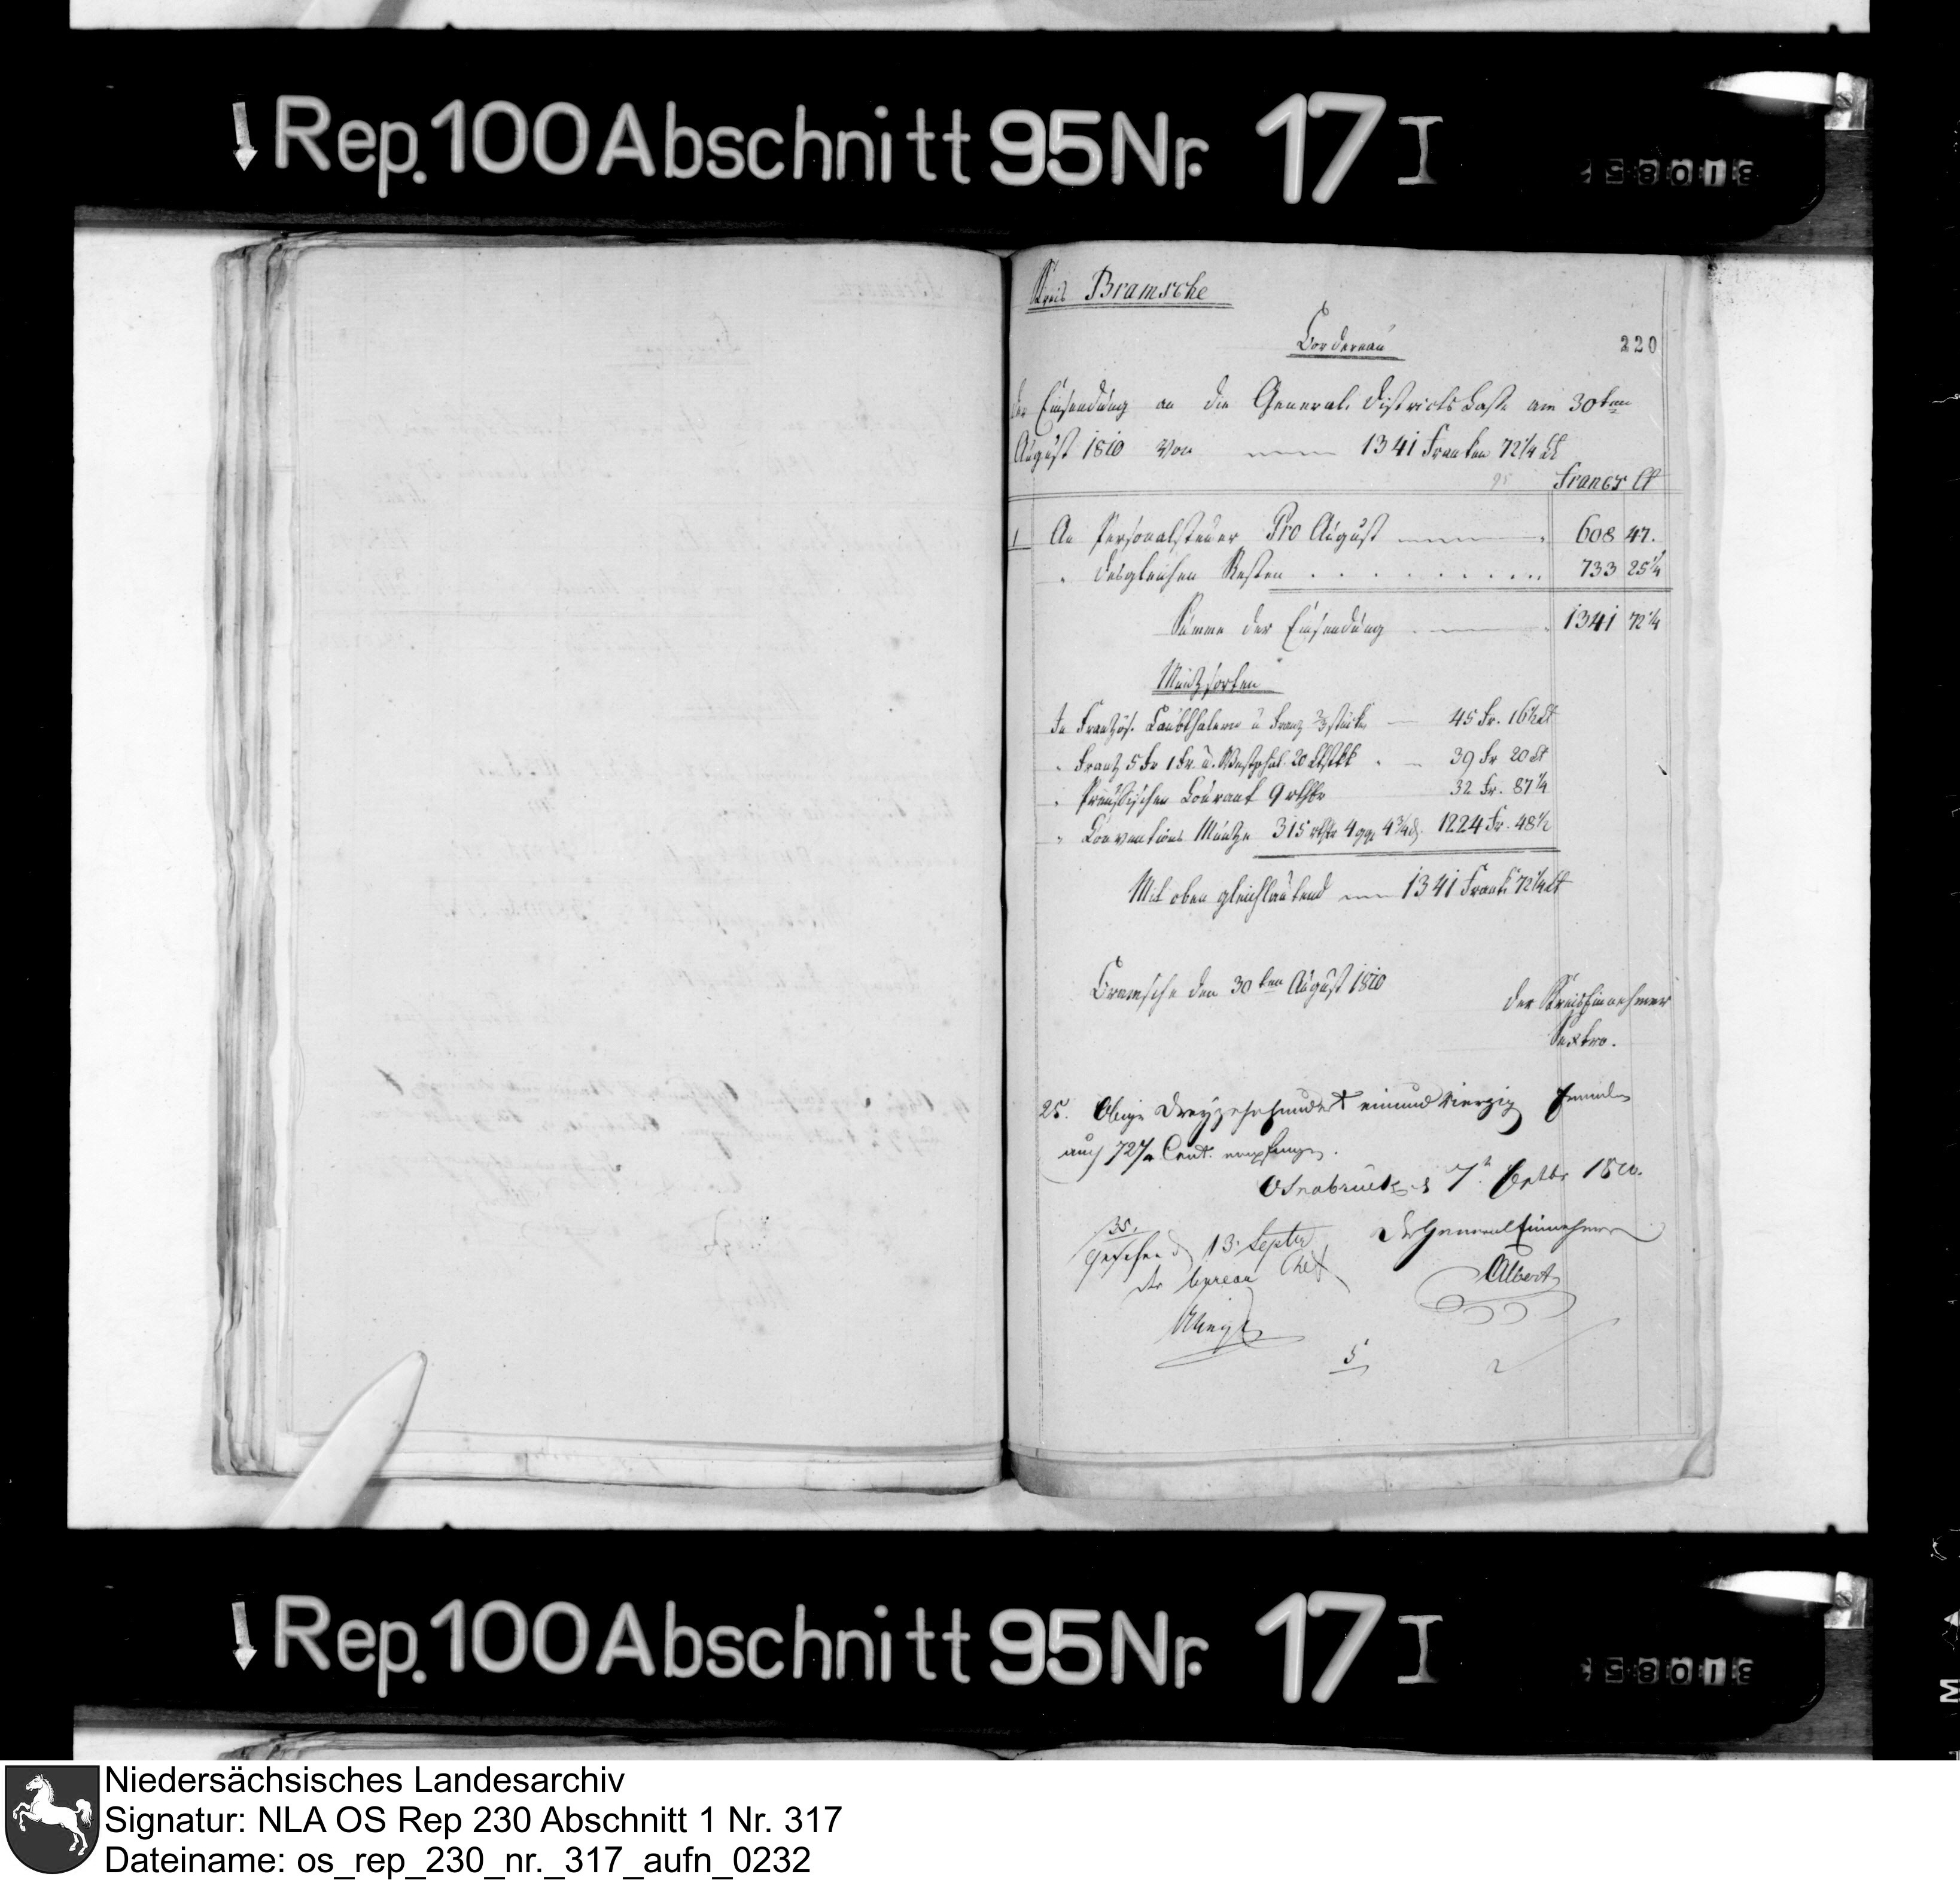 Rep. 100 Abschnitt 95 Nr. 17 I
Kreis Bramsche
Bordereau
220
der Einsendung an die General Districts Casse am 30ten
August 1810 von 1341 Franken 72 1/4 Ct
Francs Ct
1 An Personalsteuer Pro August 608 47.
" desgleichen Resten . . . . . . . . . 733 25 1/4
Summe der Einsendung 1341 72 1/4
Müntzsorten
In Französ. Laubthalern u Franz 2/3 stücke 45 Fr. 16 1/2 Ct
" Frantz 5 Fr 1 Fr. u. Westphal. 20 39 Fr 20 Ct
" Preußischen Courant 9 rthlr 32 Fr. 87 1/4
" Conventions Müntze 315 rthlr 4 ggr 4 3/4 d. 1224 Fr. 48 1/2
Mit oben gleichlautend 1341 Frank 72 1/4 Ct
Bramsche den 30ten August 1810
der Kreiseinnehmer
Sextro.
25. Obige Dreyzehnhundert einund vierzig Franken
auch 72 1/4 Cent. empfangen.
Osnabrück d 7t Septbr 1810.
Der General Einnehmer
Albert
35.
Gesehen d 13. Septbr
der bureau Chef
5
Rep. 100 Abschnitt 95 Nr. 17 I
Niedersächsisches Landesarchiv
Signatur: NLA OS Rep 230 Abschnitt 1 Nr. 317
Dateiname: os_rep_230_nr._317_aufn_0232